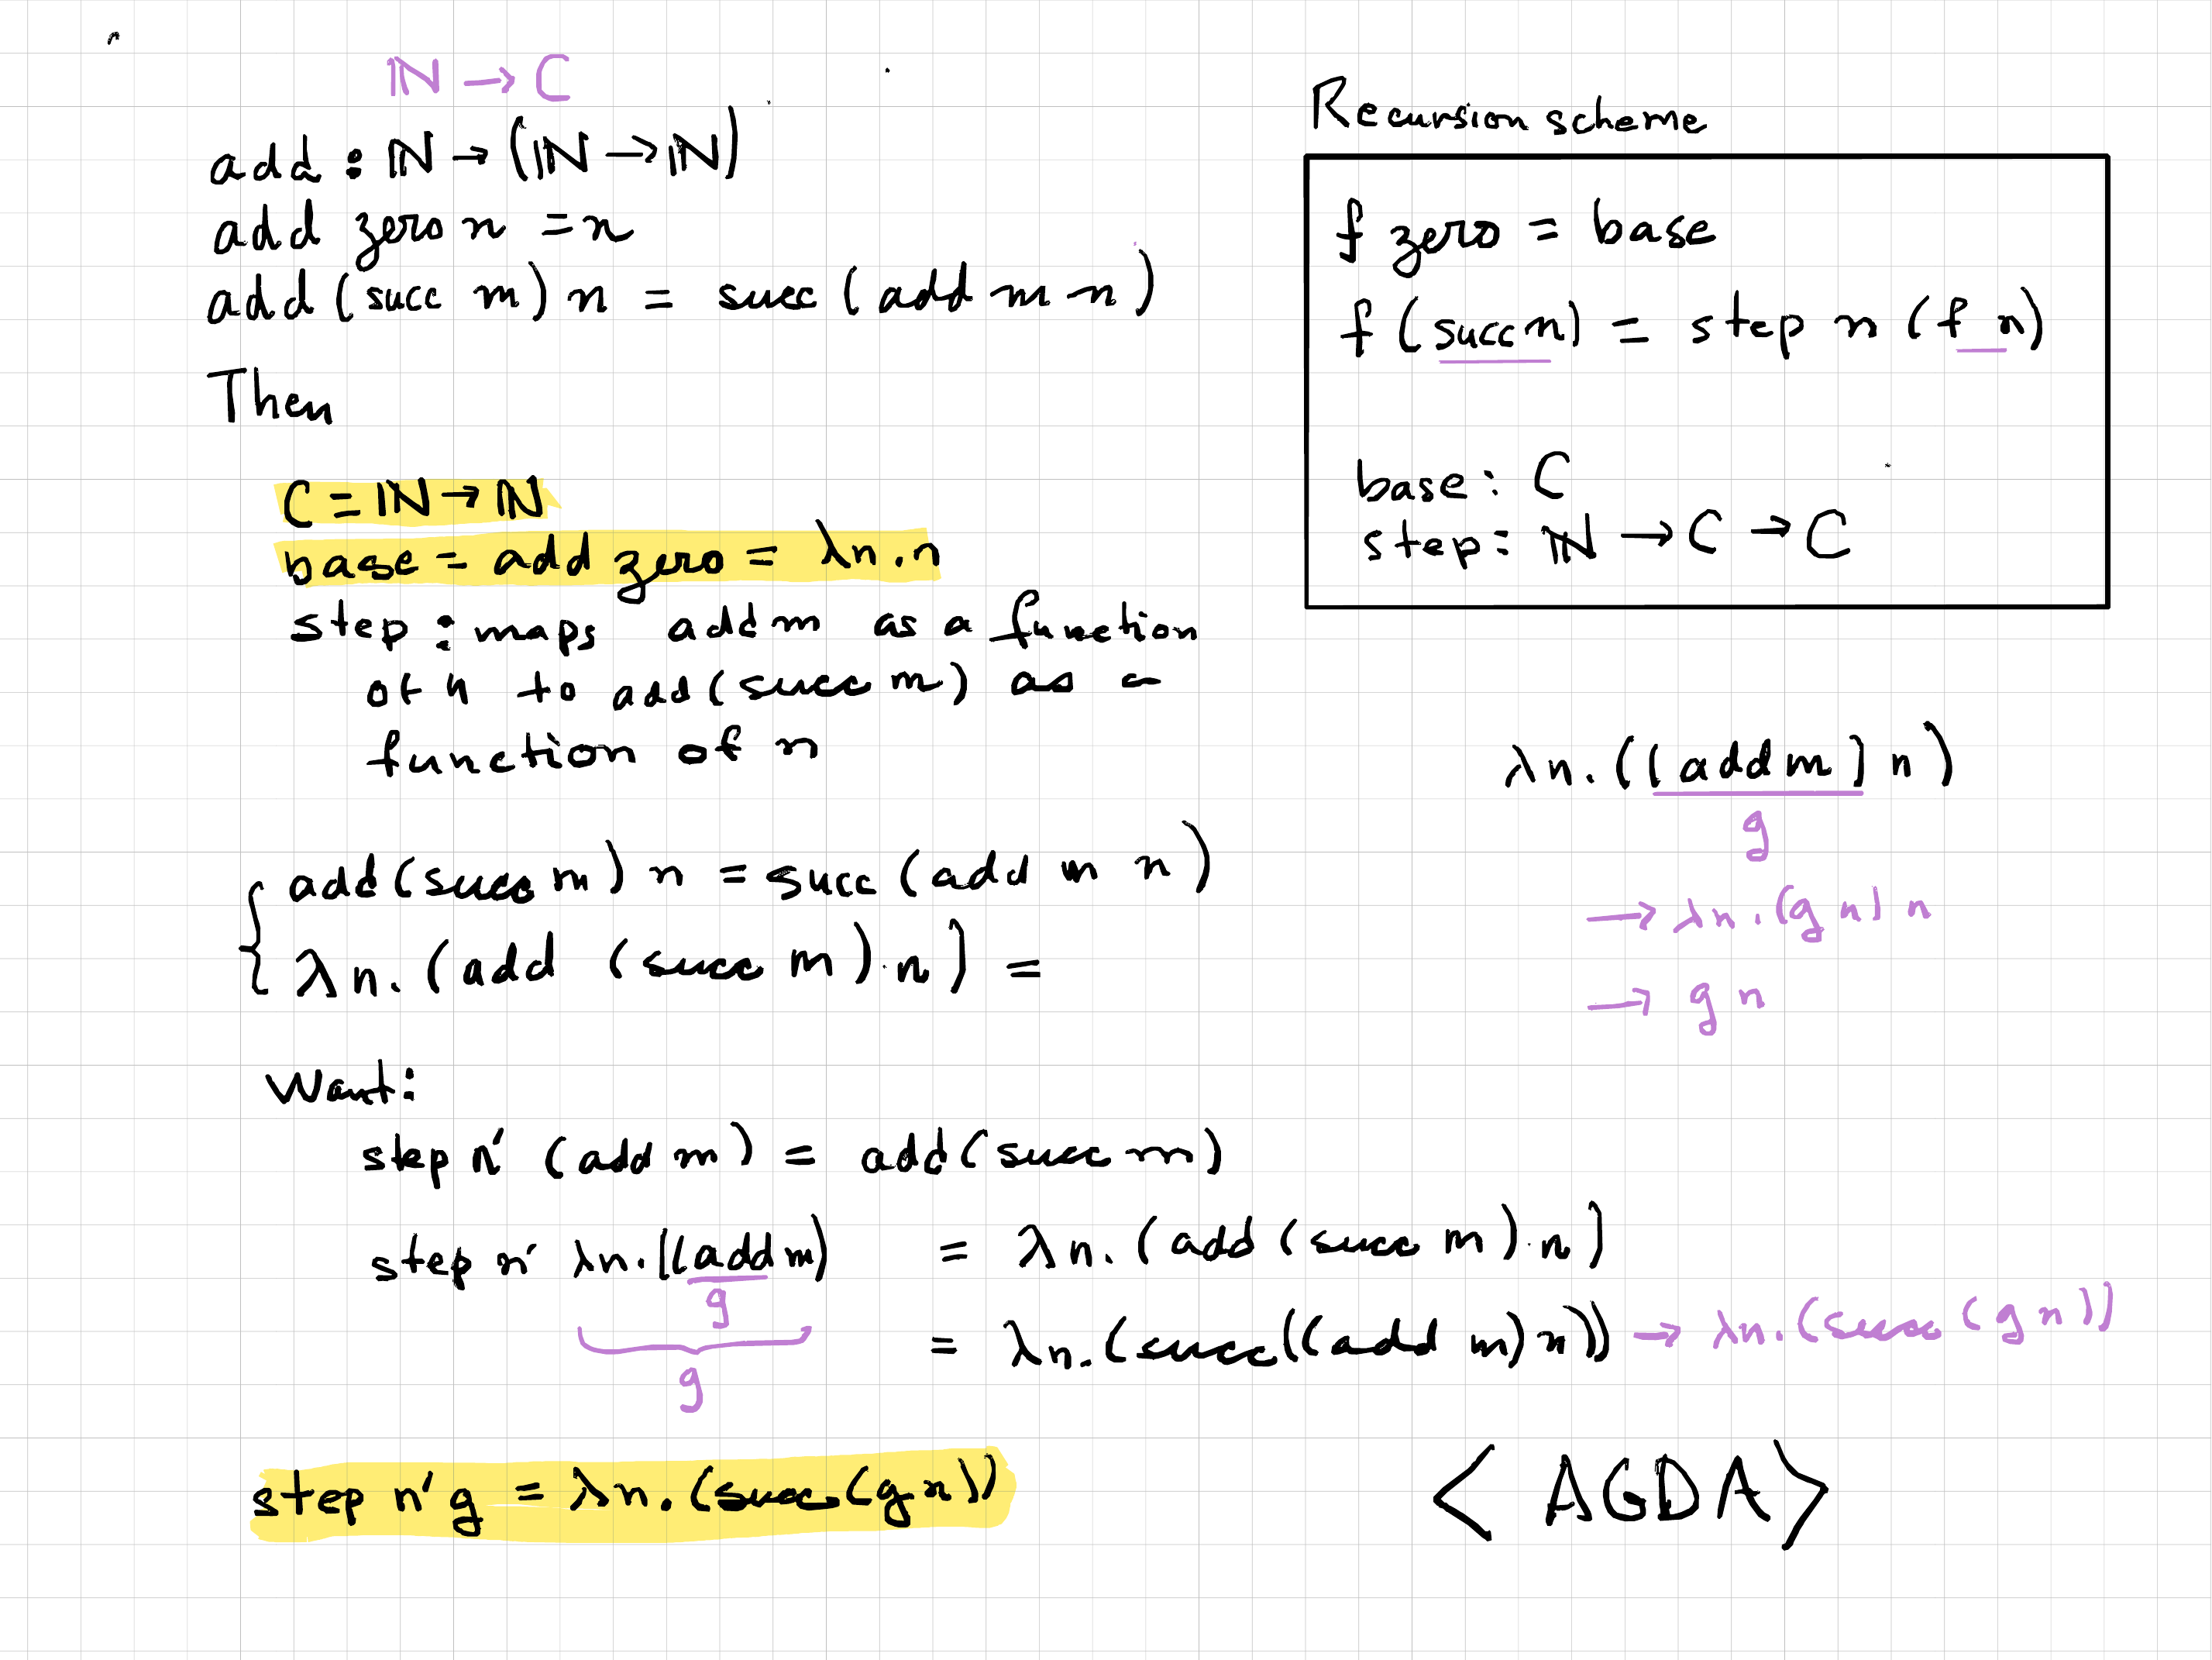 ℕ → C
add : ℕ → (ℕ → ℕ)
add zero n = n
add (succ m) n = succ (add m n)
Then
C = ℕ → ℕ
base = add zero = λn.n
step : maps add m as a function
of n to add (succ m) as a
function of n
{ add (succ m) n = succ (add m n)
λn. (add (succ m) n) =
Want:
step n' (add m) = add (succ m)
step n' λn. ((add m) = λn. (add (succ m) n)
g
= λn. (succ ((add m) n)) → λn. (succ (g n))
g
step n' g = λn. (succ (g n))
Recursion scheme
f zero = base
f (succ n) = step n (f n)
base : C
step : ℕ → C → C
λn. ((add m) n)
g
→ λn. (g n) n
→ g n
< AGDA >